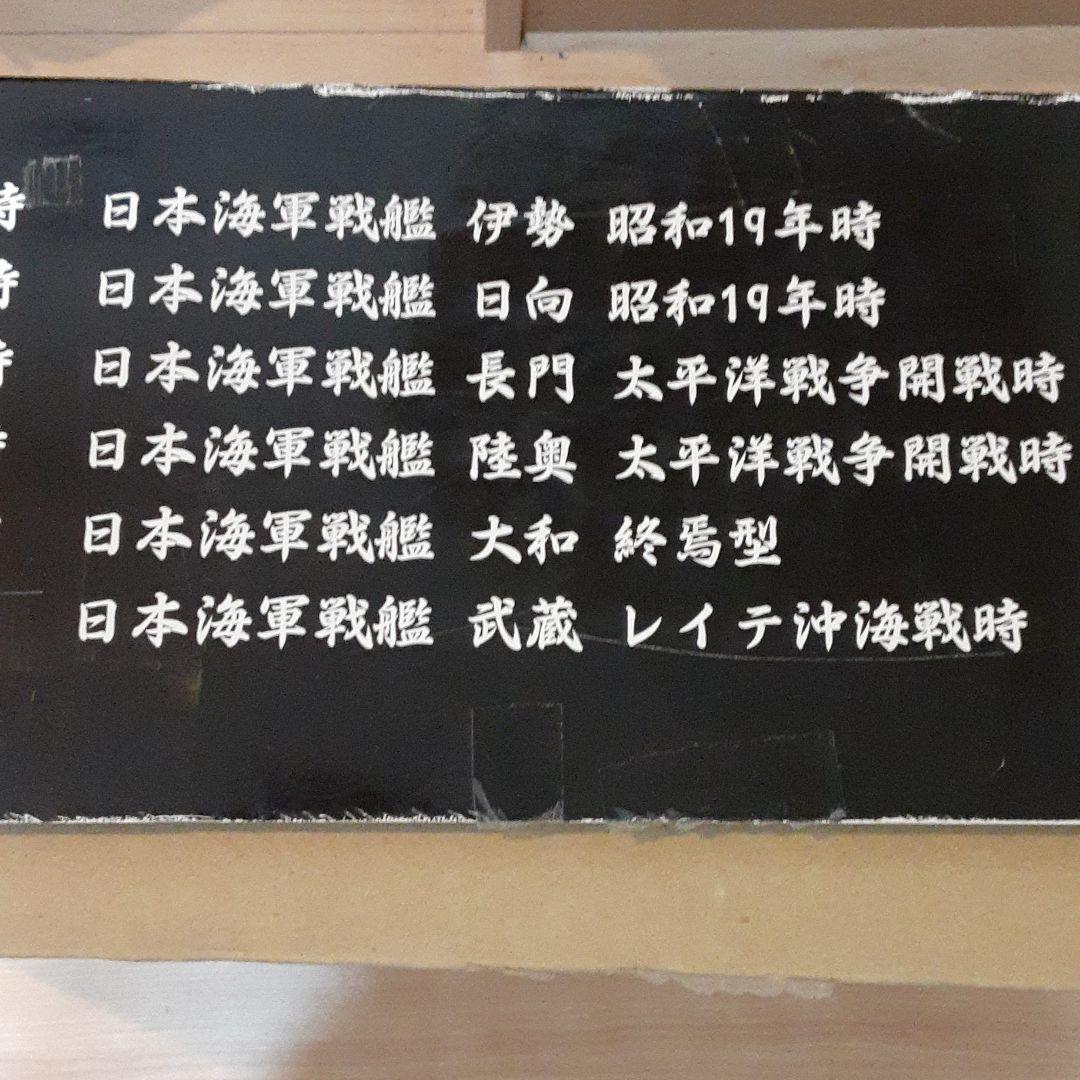 時 日本海軍戦艦 伊勢 昭和19年時
時 日本海軍戦艦 日向 昭和19年時
時 日本海軍戦艦 長門 太平洋戦争開戦時
日本海軍戦艦 陸奥 太平洋戦争開戦時
日本海軍戦艦 大和 終焉型
日本海軍戦艦 武蔵 レイテ沖海戦時